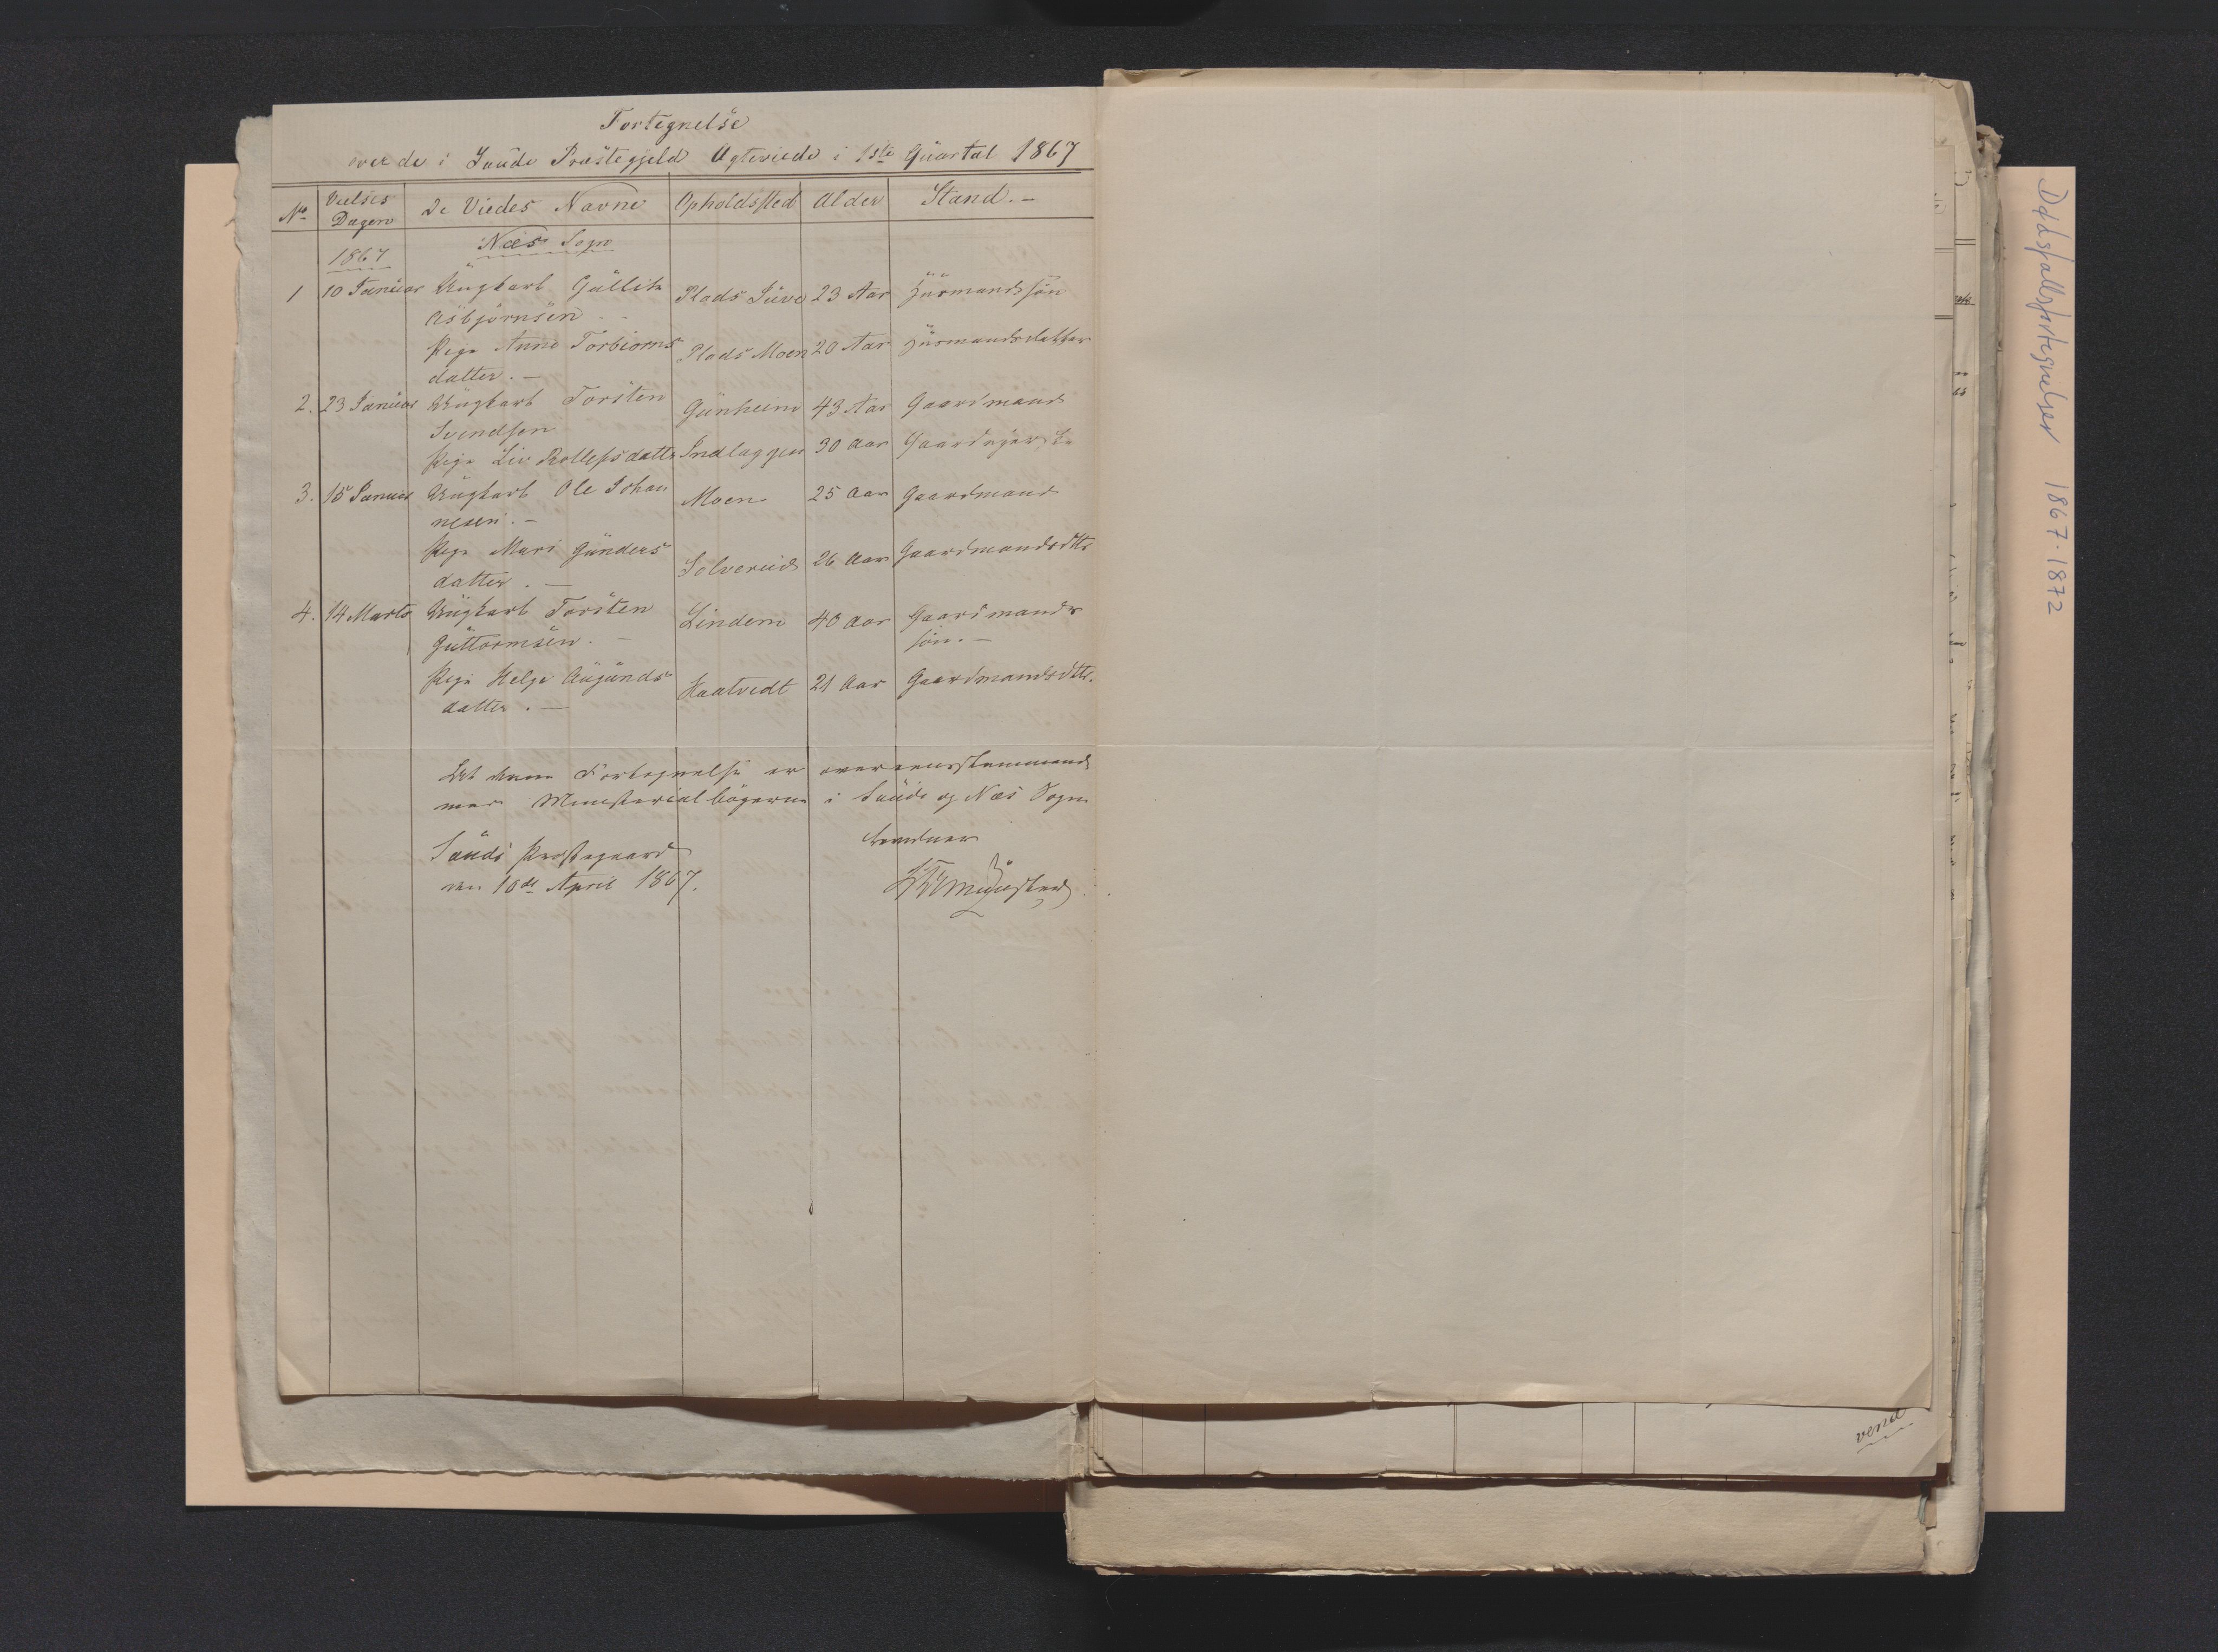 Fortegnelse
over de i Saude Præstegjeld Ægteviede i 1ste Quartal 1867
No Vielses Dagen De Viedes Navne Opholdssted Alder Stand.-
1867 Næs Sogn
1 10 Januar Ungkarl Gullik Plads Sáve 23 Aar Huusmandssøn
Asbjørnsen
Pige Anne Torbiorns Plads Moen 20 Aar Huusmandsdatter
datter.-
2. 23 Januar Ungkarl Torsten Gunheim 43 Aar Gaardmand
Svendsen
Pige Liv Rollefsdatter Indlaggen 30 Aar
3. 15 Januar Ungkarl Ole Johan Moen 25 Aar Gaardmand
nesen.-
Pige Mari Gunders Solverud 26 Aar Gaardmandsdttr
datter.-
4. 14 Marts Ungkarl Torsten Lindem 40 Aar Gaardmands
Guttormsen.- søn.-
Pige Helge Augunds Haatvedt 21 Aar Gaardmandsdttr.
datter.-
At denne Fortegnelse er overeensstemmende
med Ministerialbøgerne i Saude og Næs Sogne
bevidner
Saude Præstegaard
den 10de April 1867. Münster
vend
Dødsfallsfortegnelser 1867-1872